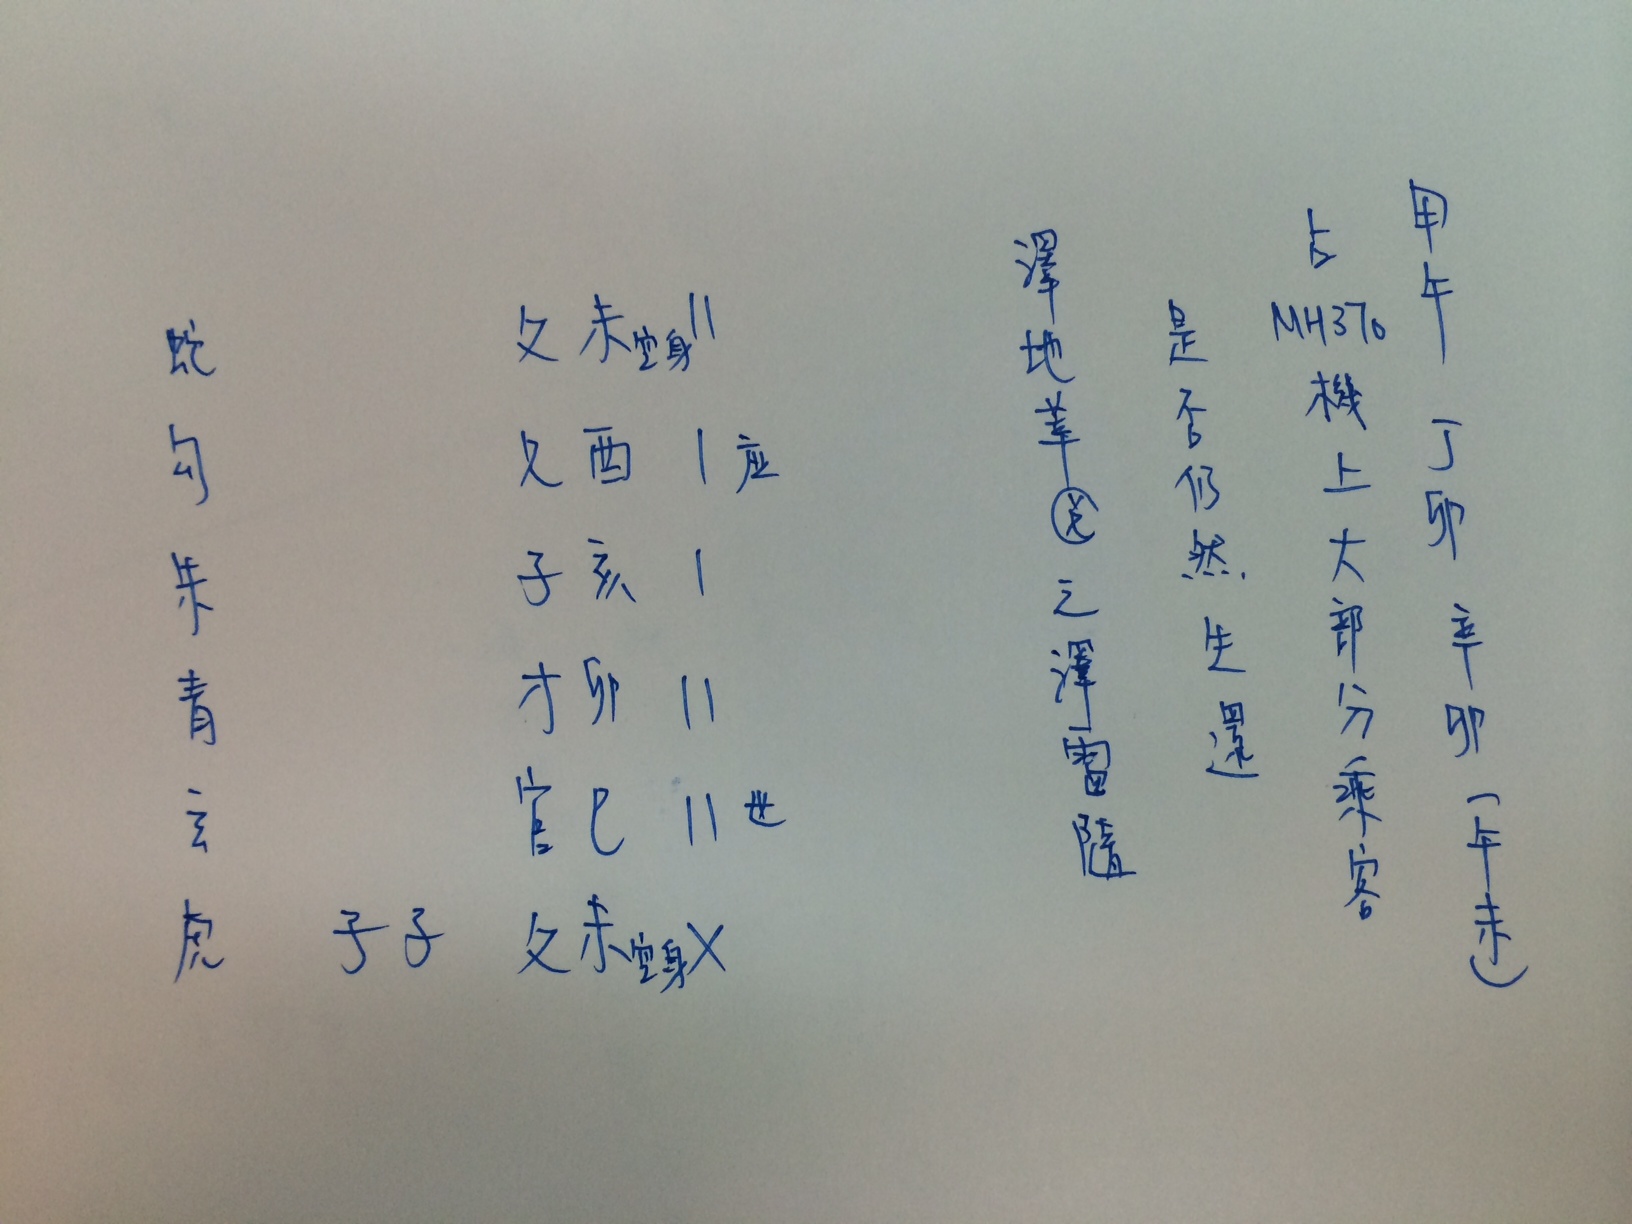 甲午 丁卯 辛卯（午未）
占MH370機上大部分乘客
是否仍然生還
澤地萃兑之澤雷隨
蛇 父未空身 ||
勾 兄酉 | 应
朱 子亥 |
青 才卯 ||
玄 官巳 || 世
虎 子子 父未空身 X